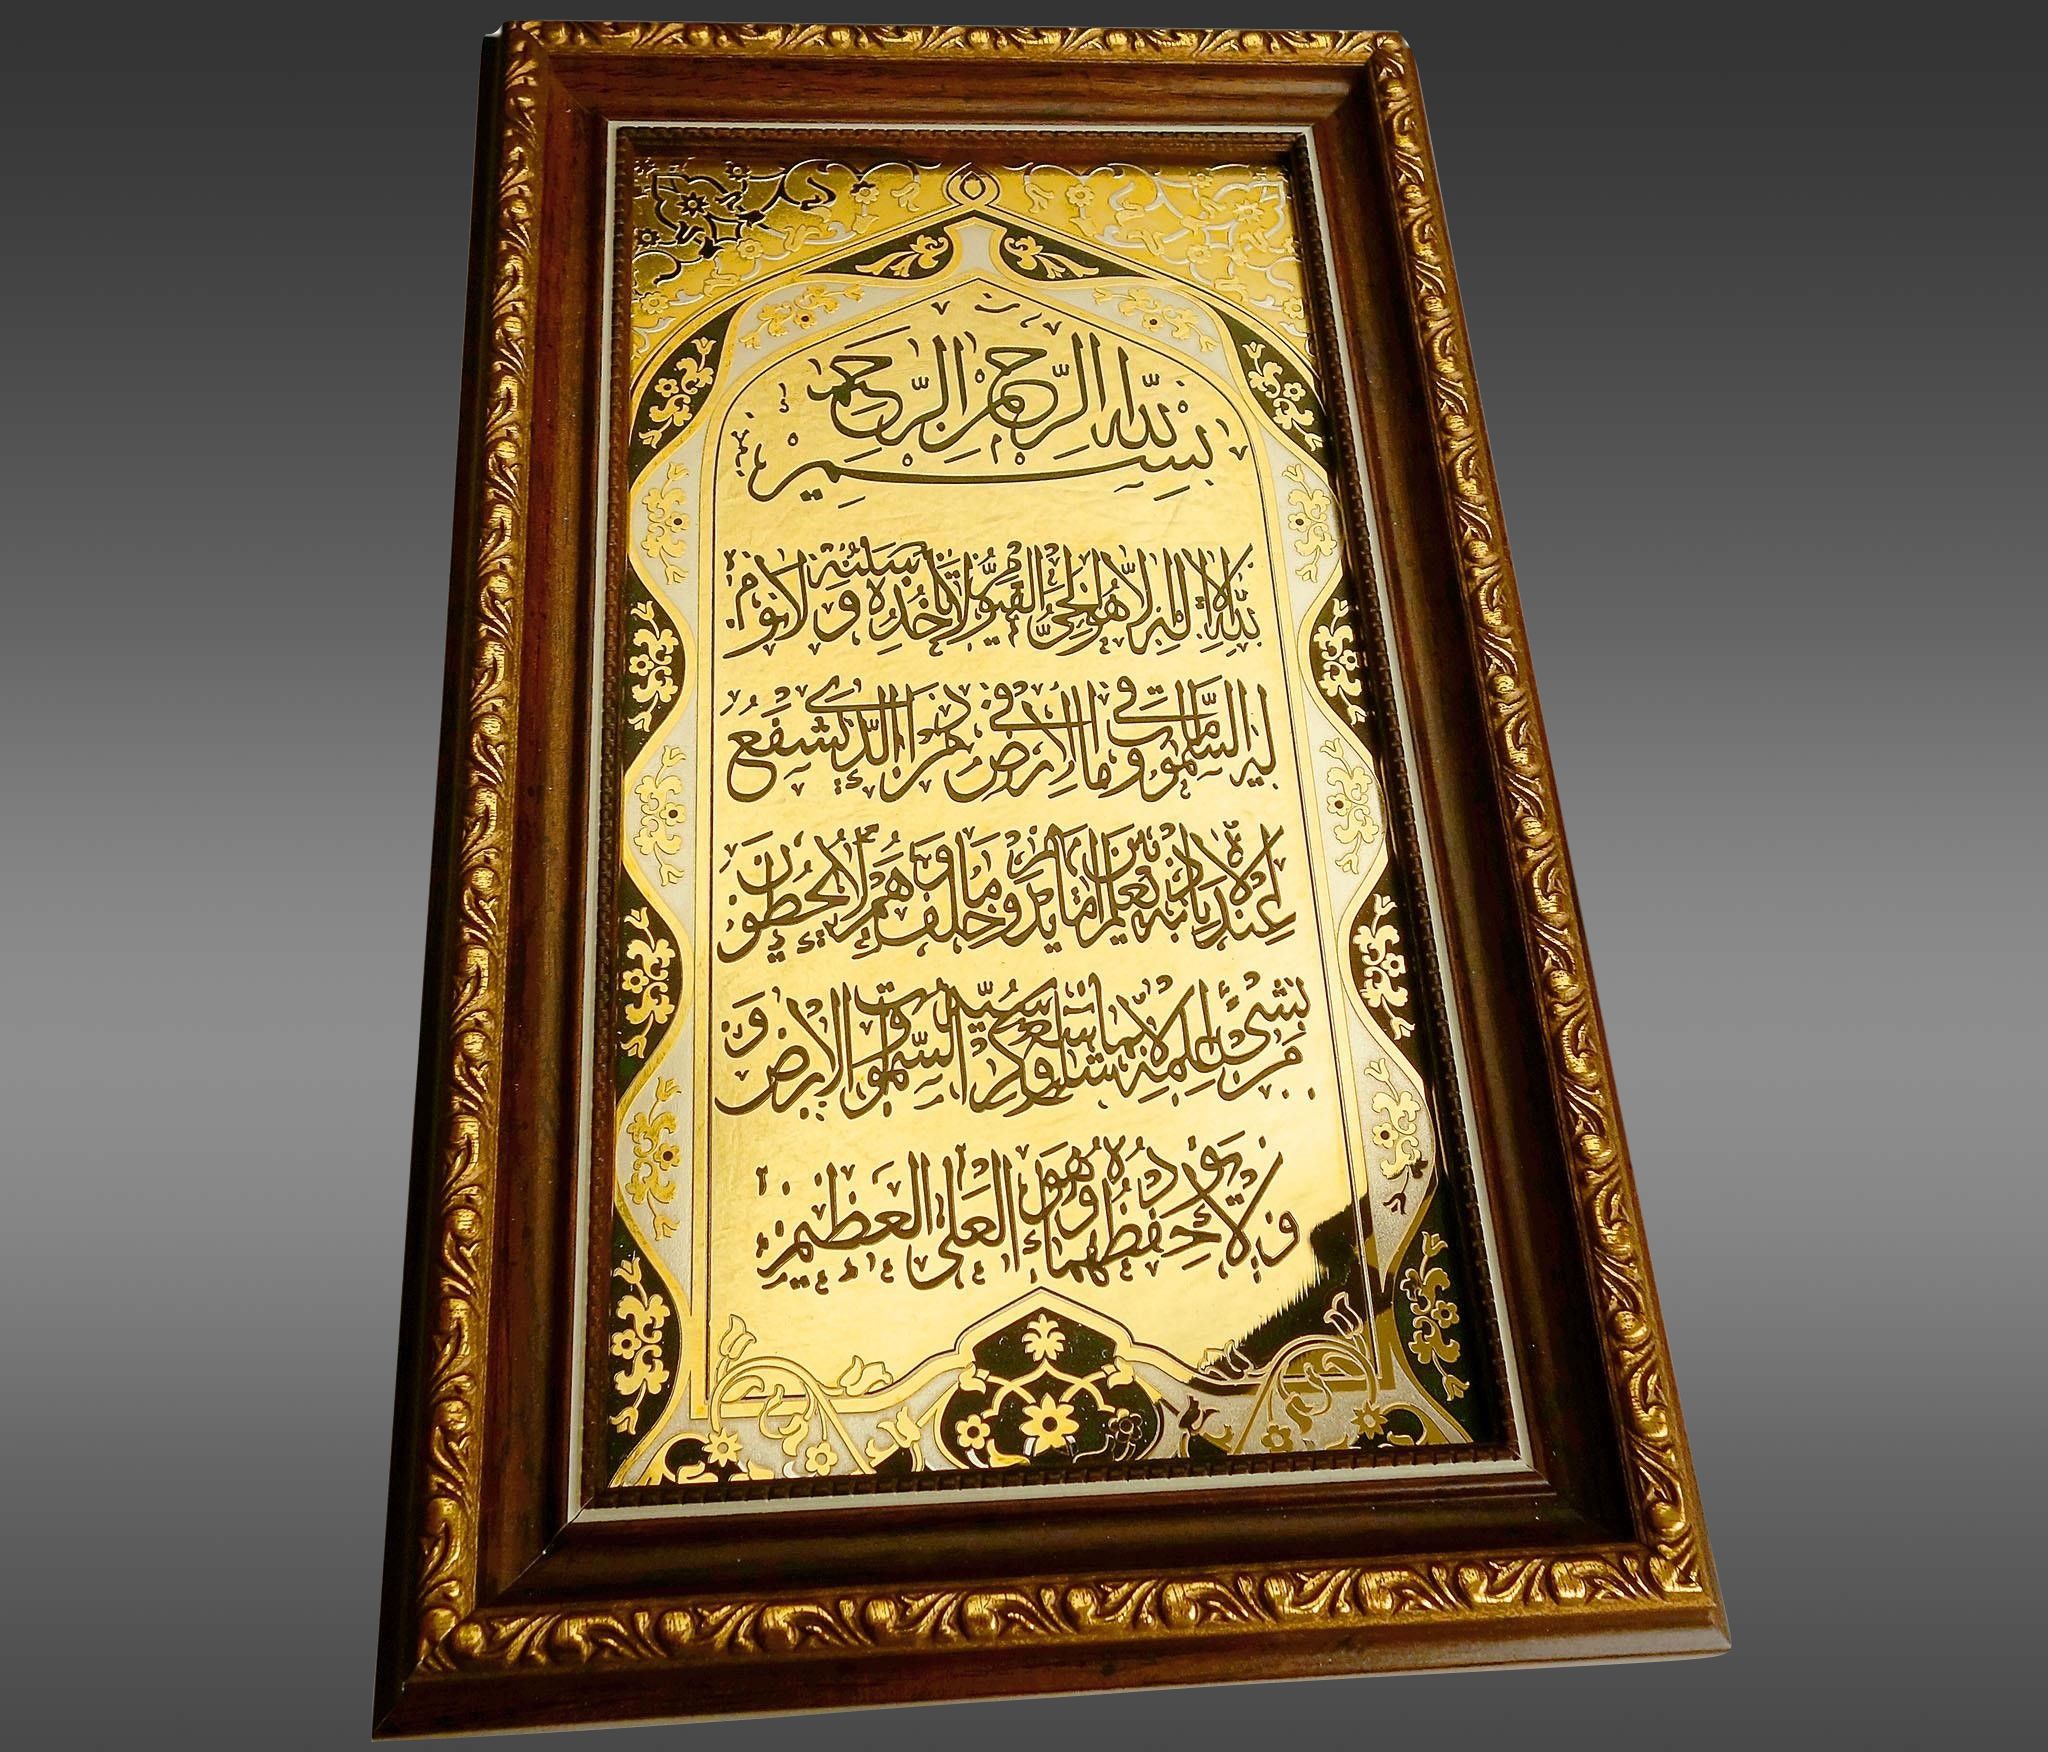 بِسْمِ اللّٰهِ الرَّحْمٰنِ الرَّحِيْمِ
اَللّٰهُ لَا اِلٰهَ اِلَّا هُوَ الْحَيُّ الْقَيُّوْمُ لَا تَأْخُذُهُ سِنَةٌ وَلَا نَوْمٌ
لَهُ مَا فِي السَّمٰوَاتِ وَمَا فِي الْاَرْضِ مَنْ ذَا الَّذِيْ يَشْفَعُ
عِنْدَهُ اِلَّا بِاِذْنِهِ يَعْلَمُ مَا بَيْنَ اَيْدِيْهِمْ وَمَا خَلْفَهُمْ وَلَا يُحِيْطُوْنَ
بِشَيْءٍ مِنْ عِلْمِهِ اِلَّا بِمَا شَاءَ وَسِعَ كُرْسِيُّهُ السَّمٰوَاتِ وَالْاَرْضَ
وَلَا يَؤُدُهُ حِفْظُهُمَا وَهُوَ الْعَلِيُّ الْعَظِيْمُ